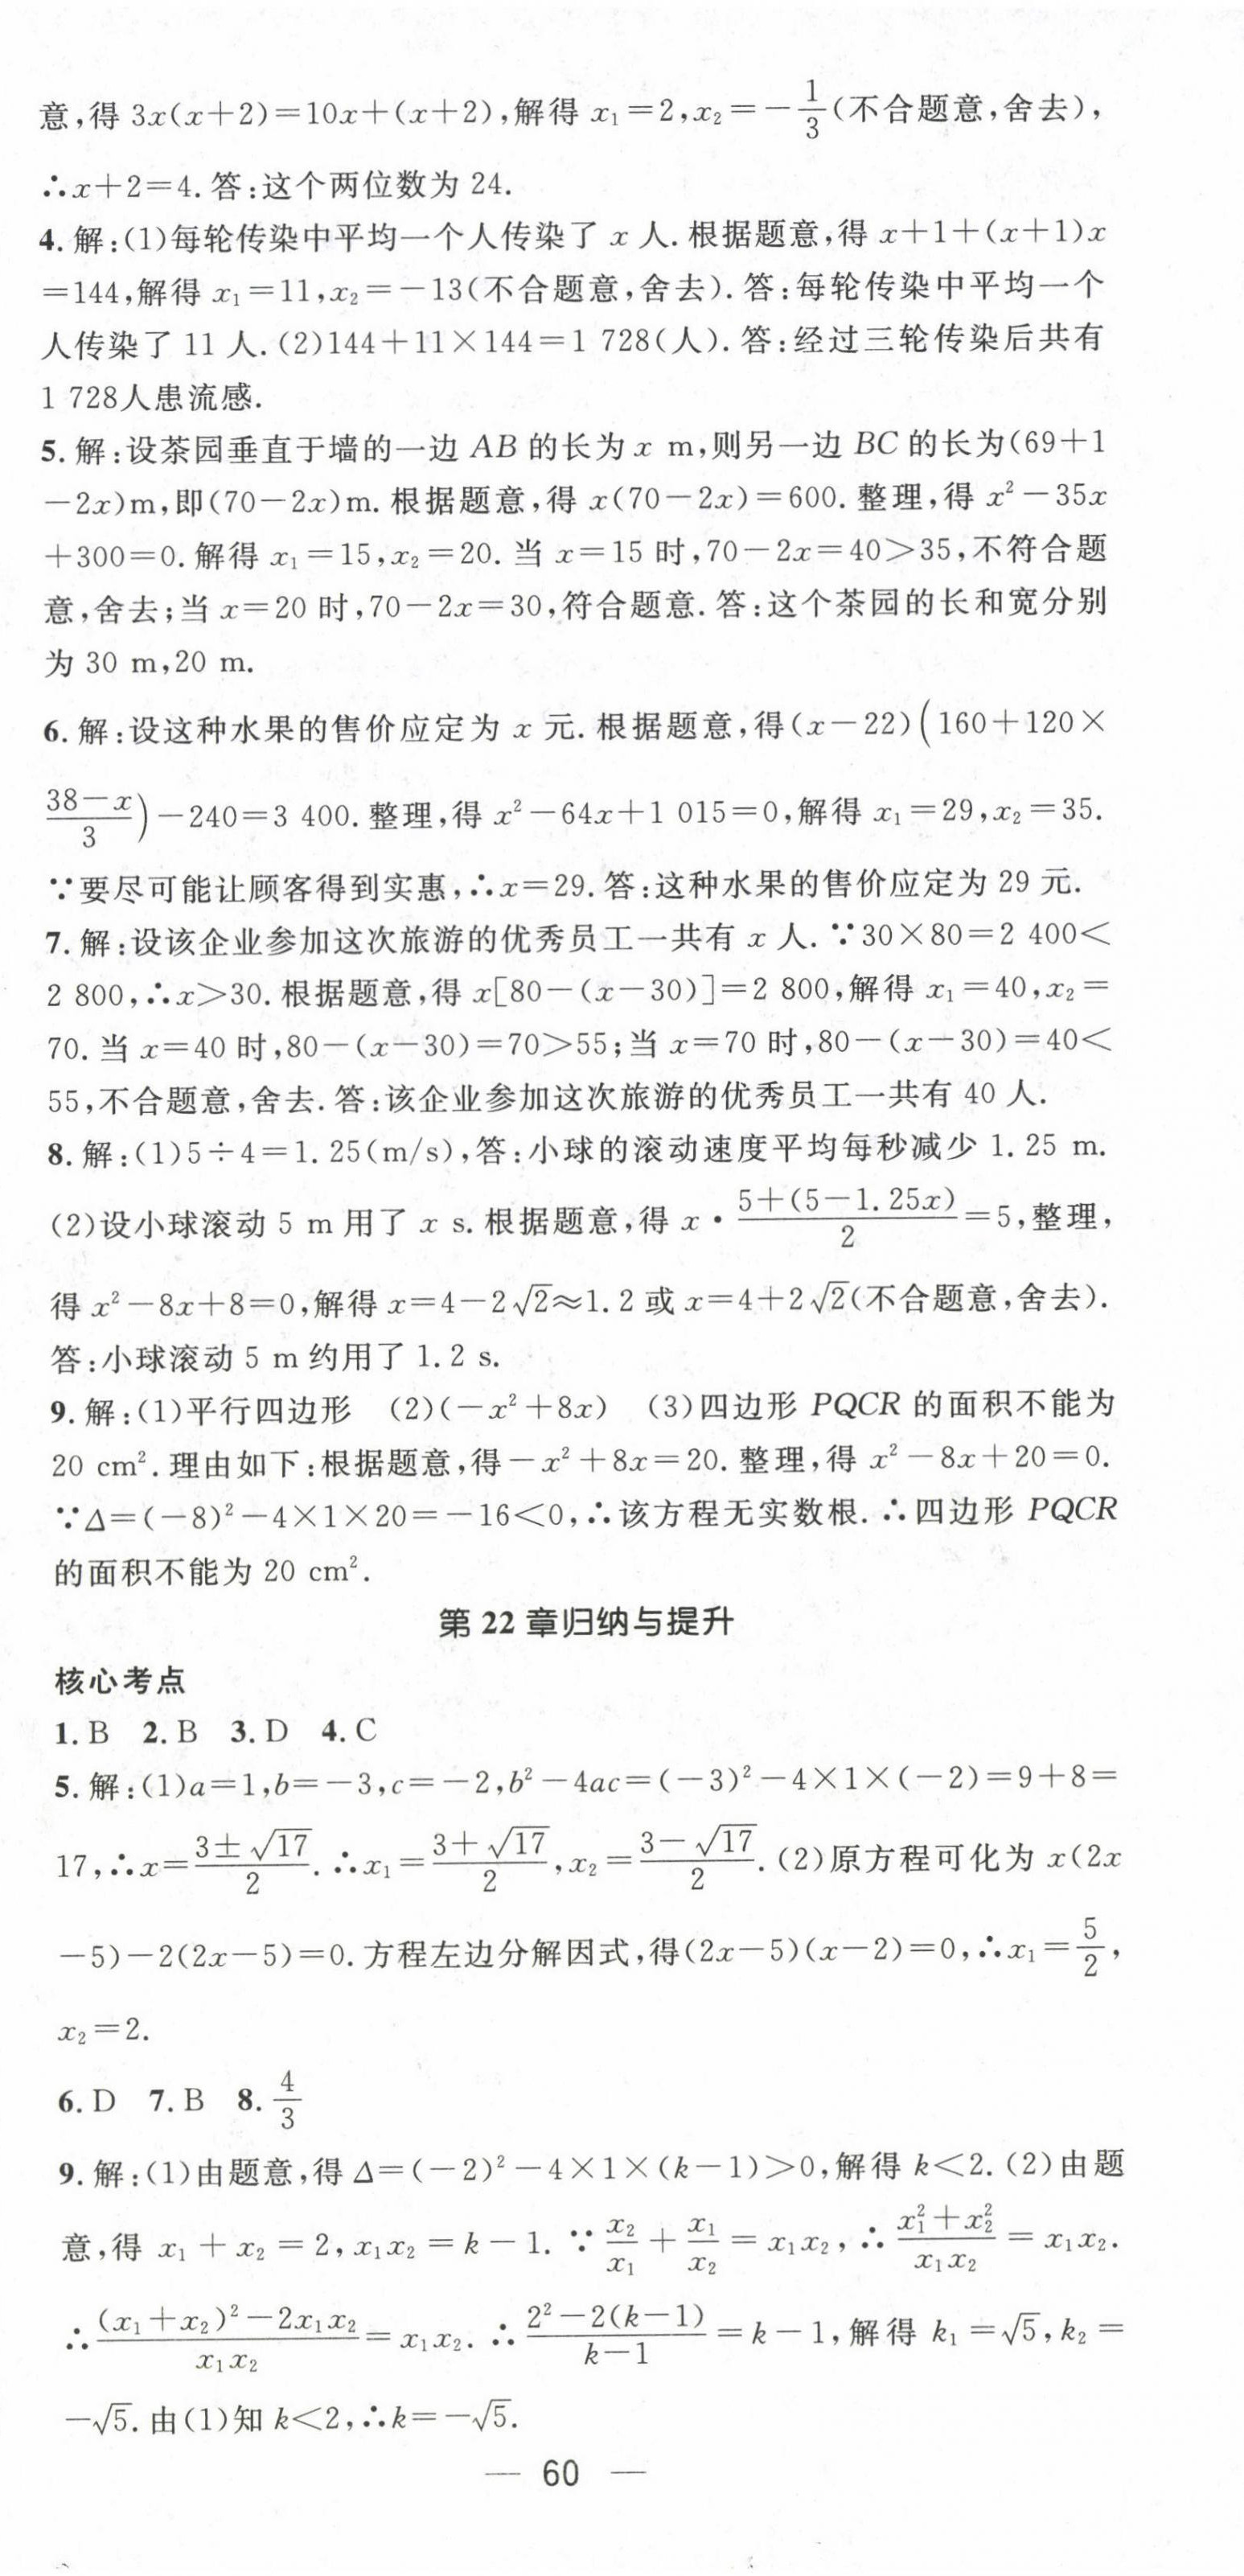 意,得 3x(x+2)=10x+(x+2),解得 x₁=2,x₂=-1/3(不合题意,舍去),
∴x+2=4. 答:这个两位数为 24.
4. 解:(1)每轮传染中平均一个人传染了 x 人. 根据题意,得 x+1+(x+1)x
=144,解得 x₁=11,x₂=-13(不合题意,舍去). 答:每轮传染中平均一个
人传染了 11 人. (2)144+11×144=1 728(人). 答:经过三轮传染后共有
1 728人患流感.
5. 解:设茶园垂直于墙的一边 AB 的长为 x m,则另一边 BC 的长为(69+1
-2x)m,即(70-2x)m. 根据题意,得 x(70-2x)=600. 整理,得 x²-35x
+300=0. 解得 x₁=15,x₂=20. 当 x=15 时,70-2x=40>35,不符合题
意,舍去;当 x=20 时,70-2x=30,符合题意. 答:这个茶园的长和宽分别
为 30 m,20 m.
6. 解:设这种水果的售价应定为 x 元. 根据题意,得(x-22)(160+120×
(38-x)/3)-240=3 400. 整理,得 x²-64x+1 015=0,解得 x₁=29,x₂=35.
∵要尽可能让顾客得到实惠,∴x=29. 答:这种水果的售价应定为 29 元.
7. 解:设该企业参加这次旅游的优秀员工一共有 x 人. ∵30×80=2 400<
2 800,∴x>30. 根据题意,得 x[80-(x-30)]=2 800,解得 x₁=40,x₂=
70. 当 x=40 时,80-(x-30)=70>55;当 x=70 时,80-(x-30)=40<
55,不合题意,舍去. 答:该企业参加这次旅游的优秀员工一共有 40 人.
8. 解:(1)5÷4=1. 25(m/s),答:小球的滚动速度平均每秒减少 1. 25 m.
(2)设小球滚动 5 m 用了 x s. 根据题意,得 x·(5+(5-1. 25x))/2=5,整理,
得 x²-8x+8=0,解得 x=4-2√2≈1. 2 或 x=4+2√2(不合题意,舍去).
答:小球滚动 5 m 约用了 1. 2 s.
9. 解:(1)平行四边形 (2)(-x²+8x) (3)四边形 PQCR 的面积不能为
20 cm². 理由如下:根据题意,得-x²+8x=20. 整理,得 x²-8x+20=0.
∵Δ=(-8)²-4×1×20=-16<0,∴该方程无实数根. ∴四边形 PQCR
的面积不能为 20 cm².
第 22 章归纳与提升
核心考点
1. B 2. B 3. D 4. C
5. 解:(1)a=1,b=-3,c=-2,b²-4ac=(-3)²-4×1×(-2)=9+8=
17,∴x=(3±√17)/2. ∴x₁=(3+√17)/2,x₂=(3-√17)/2. (2)原方程可化为 x(2x
-5)-2(2x-5)=0. 方程左边分解因式,得(2x-5)(x-2)=0,∴x₁=5/2,
x₂=2.
6. D 7. B 8. 4/3
9. 解:(1)由题意,得 Δ=(-2)²-4×1×(k-1)>0,解得 k<2. (2)由题
意,得 x₁+x₂=2,x₁x₂=k-1. ∵x₂/x₁+x₁/x₂=x₁x₂,∴(x₁²+x₂²)/(x₁x₂)=x₁x₂.
∴((x₁+x₂)²-2x₁x₂)/(x₁x₂)=x₁x₂. ∴(2²-2(k-1))/(k-1)=k-1,解得 k₁=√5,k₂=
-√5. 由(1)知 k<2,∴k=-√5.
— 60 —